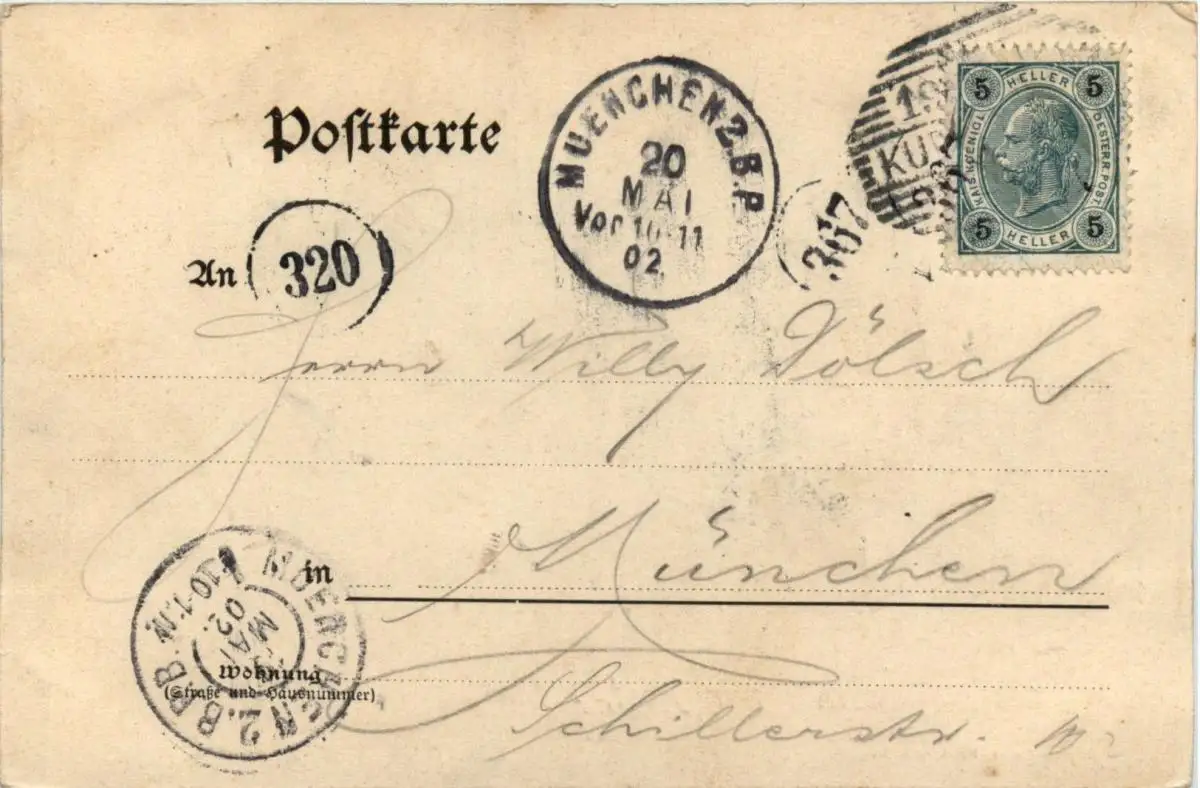 Postkarte
MUENCHEN 2.B.P.
20
MAI
Vor 10-11
02
367
19
5 HELLER 5
KAIS. KOENIGL. OESTERR. POST
5 HELLER 5
An
320
Herrn Willy Dölsch
in München
MUENCHEN 2. B.P.
10-11
MAI
02.
Wohnung
(Straße und Hausnummer)
Schillerstr.